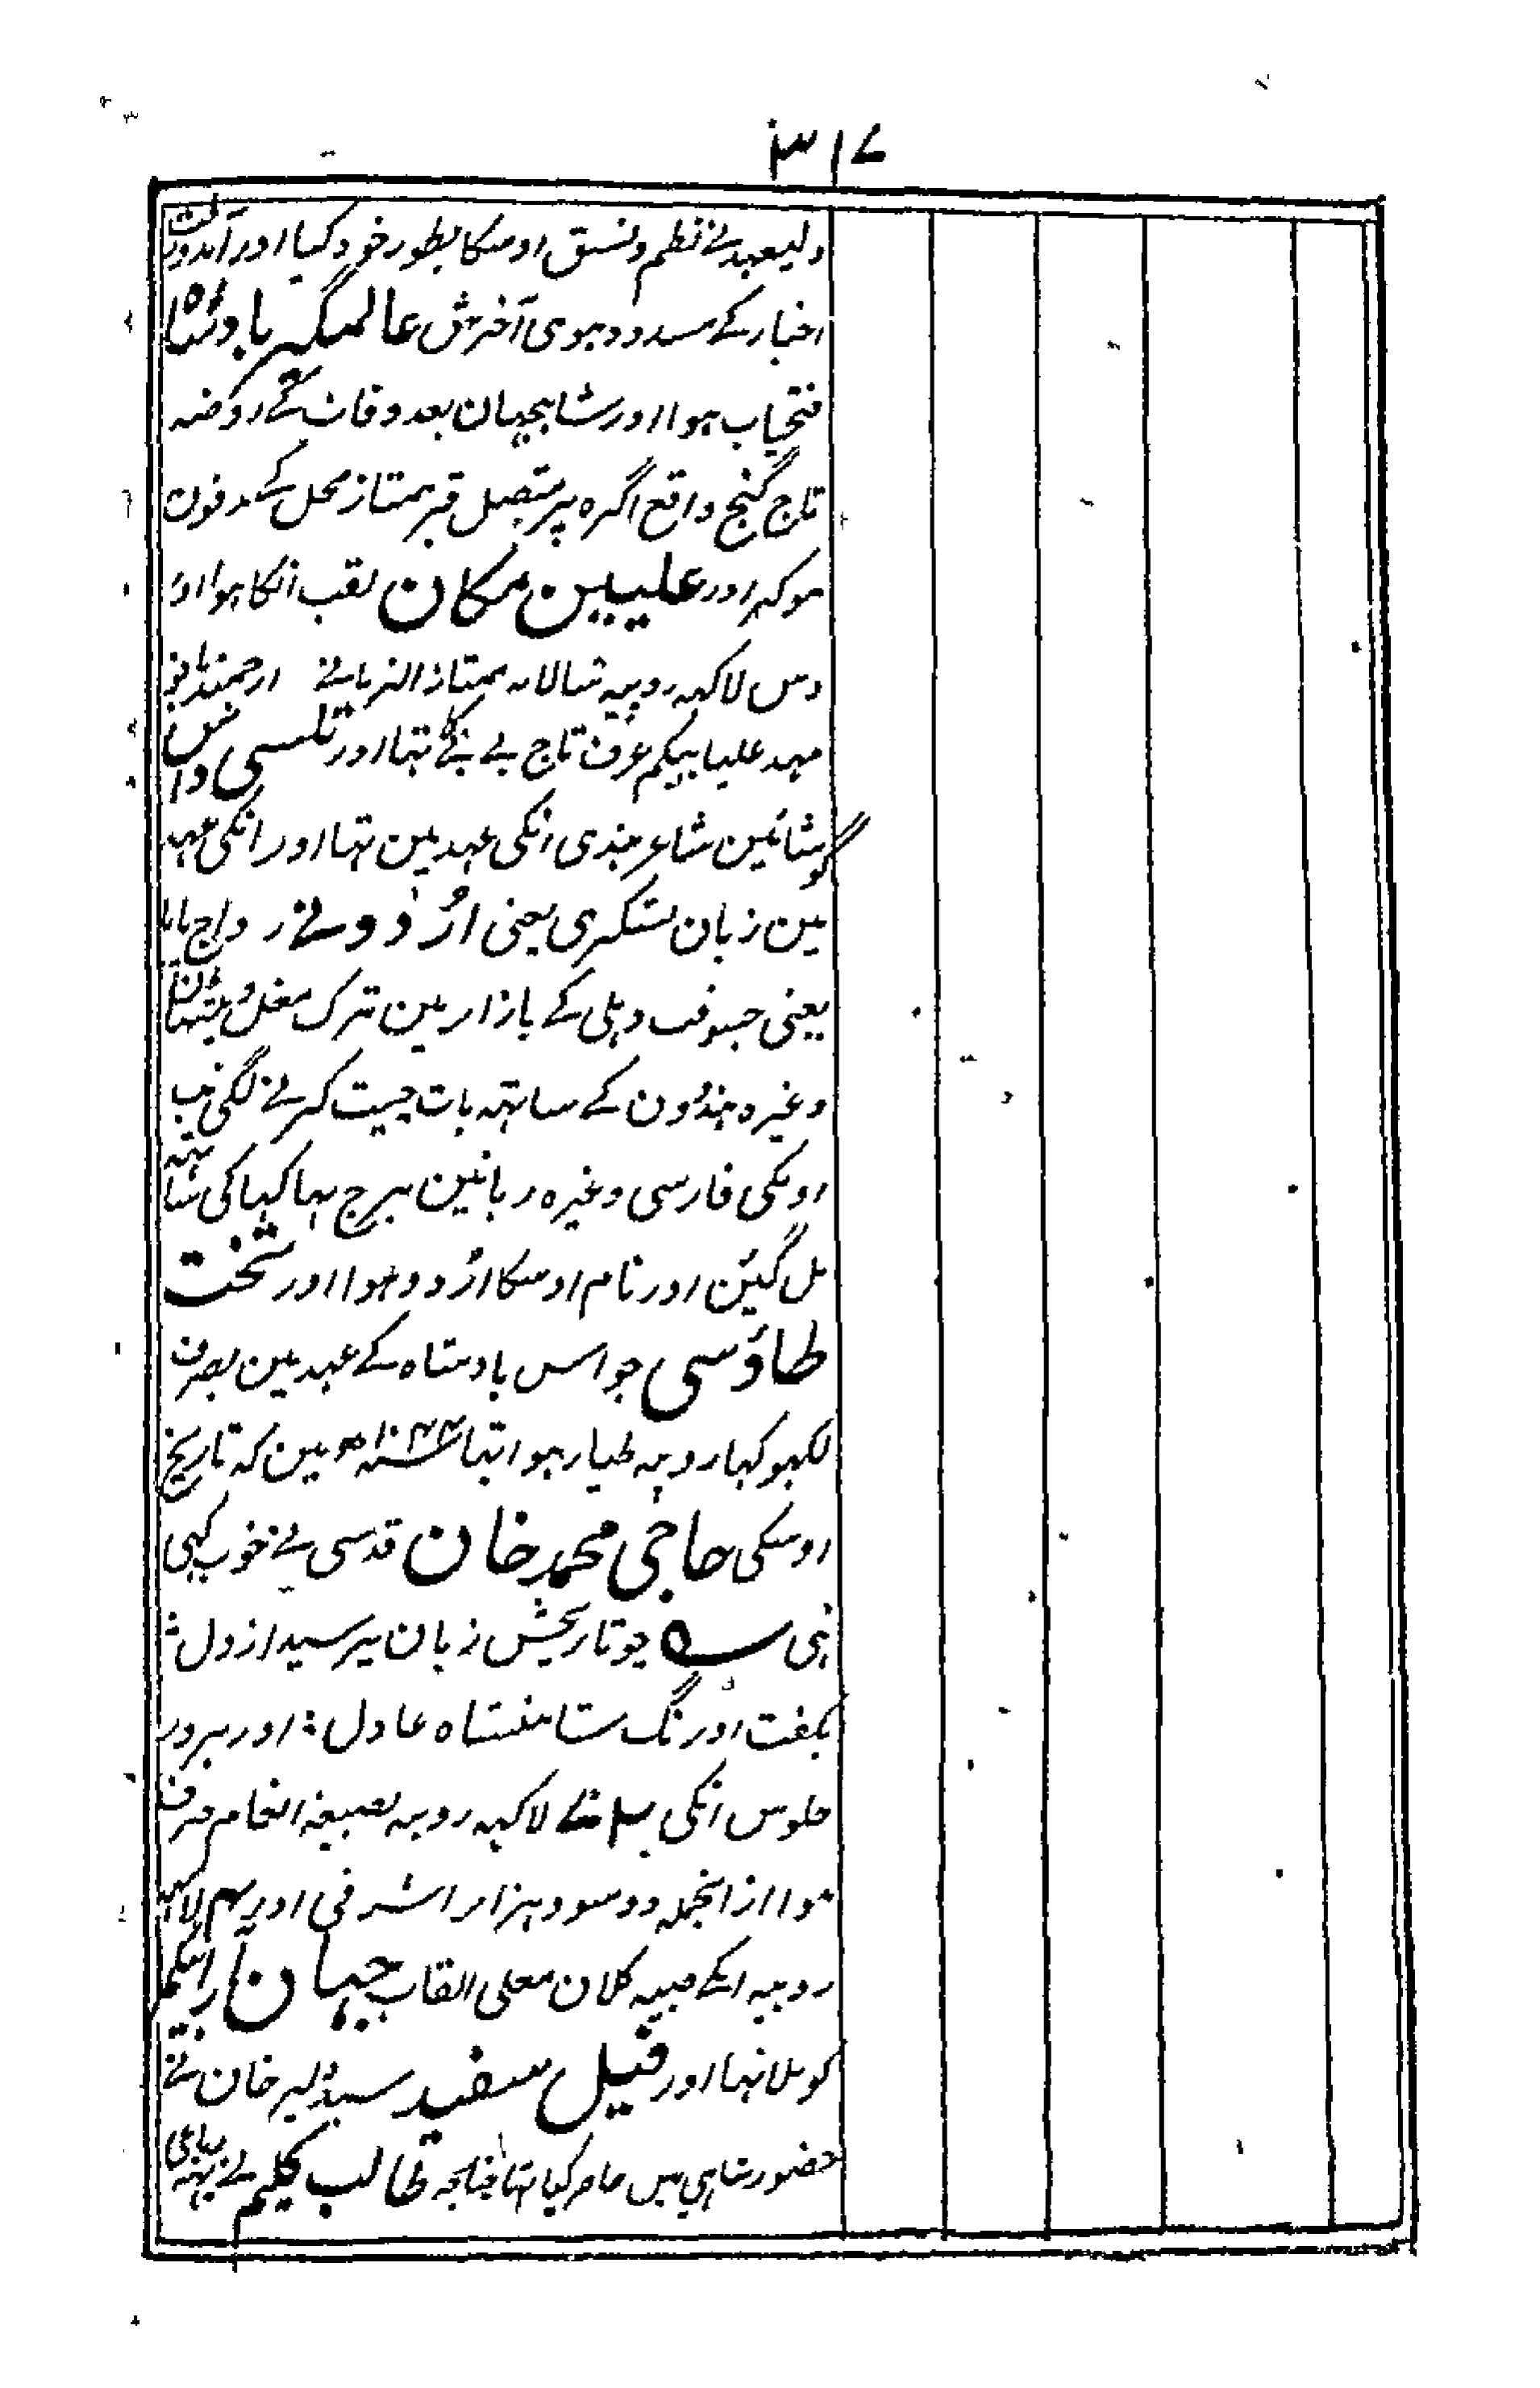 ۳۱۷
ولیعہد نے نظم ونسق اوسکا بطور خود کیا اور آمدورفت
اخبار کے مسدود ہوی آخرش عالمگیر بادشاہ
فتحیاب ہوا اور شاہجہان بعد وفات کے روضہ
تاج گنج واقع اگرہ پر متصل قبر ممتاز محل کے مدفون
ہوکر اور علیین مکان لقب انکا ہوا اور
دس لاکہہ روپیہ سالانہ ممتاز الزمانے ارجمند بانو
مہد علیا بیگم عرف تاج بے بی کا تہا اور تلسی داس
گوشائین شاعر ہندی انکی عہد مین تہا اور انکی عہد
مین زبان لشکری یعنی اُردو نے رواج پایا
یعنی جسوقت دہلی کے بازار مین ترک مغل و پٹہان
وغیرہ ہندؤن کے ساتہہ بات چیت کرنے لگی تب
اونکی فارسی وغیرہ زبانین برج بہاکہا کی ساتہہ
مل گئین اور نام اوسکا اردو ہوا اور تخت
طاؤسی جو اس بادشاہ کے عہد مین بصرف
لکہوکہا روپیہ طیار ہوا تہا سنہ ۱۰۴۴ھ مین کہ تاریخ
اوسکی حاجی محمد خان قدسی نے خوب کہی
ہی ؎ چو تاریخش زبان پرسید از دل ؛
بگفت اورنگ شاہنشاہ عادل ؛ اور بروز
جلوس انکی لاکہہ روپیہ بصیغہ انعام صرف
ہوا ازانجملہ دو سو ہزار اشرفی اور لاکہہ
روپیہ انکے صبیہ کلان معلی القاب جہان آرا بیگم
کو ملا تہا اور فیل سفید سید دلیر خان نے
حضور شاہی مین حاضر کیا تہا چنانچہ طالب کلیم نے یہہ رباعی